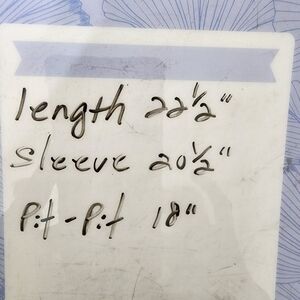 length 22½"
Sleeve 20½"
Pit-Pit 18"